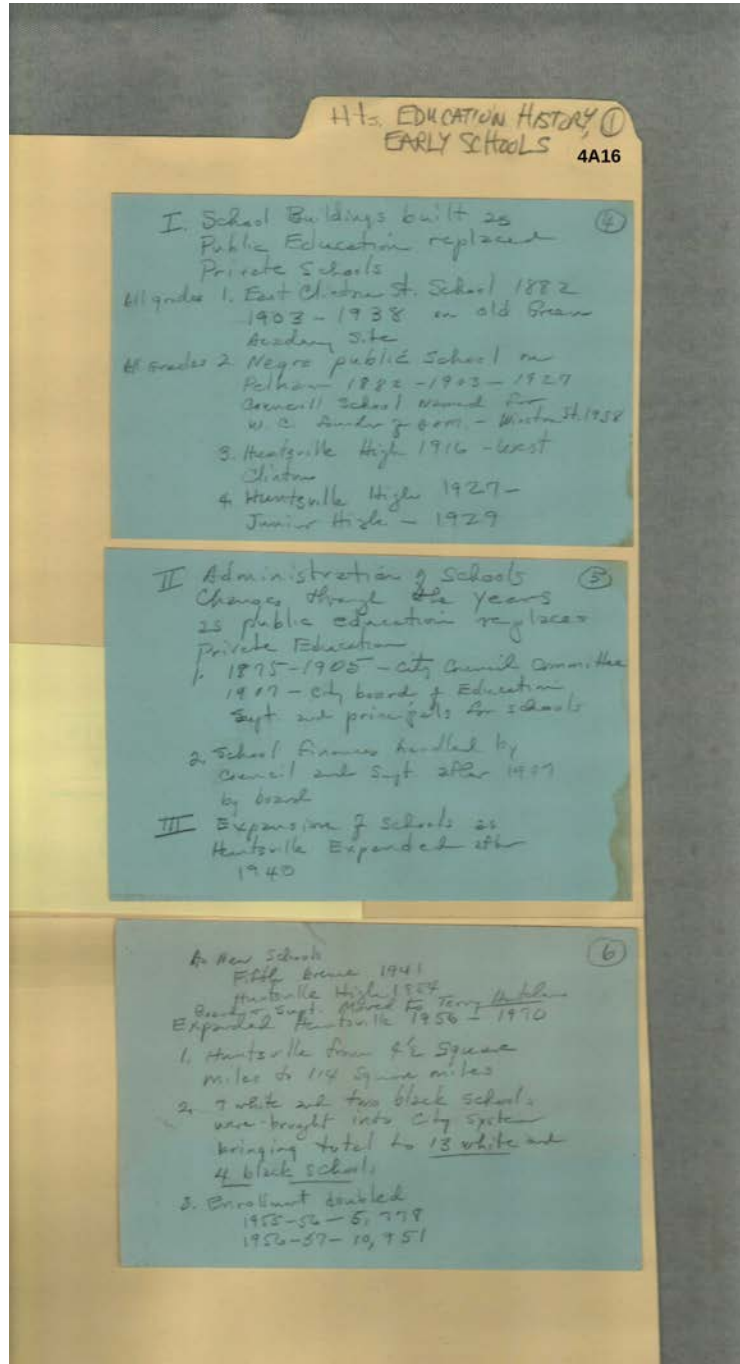 Hts. EDUCATION HISTORY, ①
EARLY SCHOOLS
4A16
④
I. School Buildings built as
Public Education replaced
Private Schools
All grades 1. East Clinton St. School 1882
1903 - 1938 on old Green
Academy Site
All grades 2. Negro public School on
Pelham 1882 - 1903 - 1927
Councill School named for
W. C. founder of A&M. - Winston St. 1958
3. Huntsville High 1916 - West
Clinton
4. Huntsville High 1927 -
Junior High - 1929
⑤
II Administration of Schools
Changes through the years
as public education replaces
Private Education
1. 1875-1905 - City Council Committee
1907 - City board of Education,
Supt. and principals for schools
2. School finances handled by
Council and Supt. after 1907
by board
III Expansion of Schools as
Huntsville Expanded after
1940
⑥
A. New Schools
Fifth Avenue 1941
Huntsville High 1954
Board & Supt. Moved To Terry
Expanded Huntsville 1956 - 1970
1. Huntsville from 4½ Square
miles to 114 Square miles
2. 7 white and two black schools
were brought into City System
bringing total to 13 white and
4 black schools
3. Enrollment doubled
1955-56 - 5,778
1956-57 - 10,951